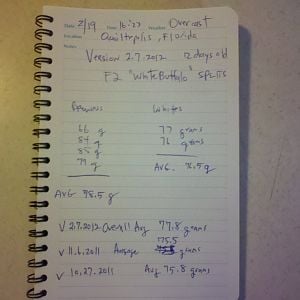 Date 2/19 Time 16:27 Weather Overcast
Location Quiltrpolis, Florida
Notes
Version 2.7.2012 12 days old
F2 "WhiteBuffalo" SPLITS
Browns Whites
66 g 77 grams
84 g 76 grams
85 g
79 g AVG. 76.5 g
AVG 78.5 g
V 2.7.2012 Overall Avg 77.8 grams
V 11.6.2011 Average 75.5 grams
V 10.27.2011 Avg 75.8 grams